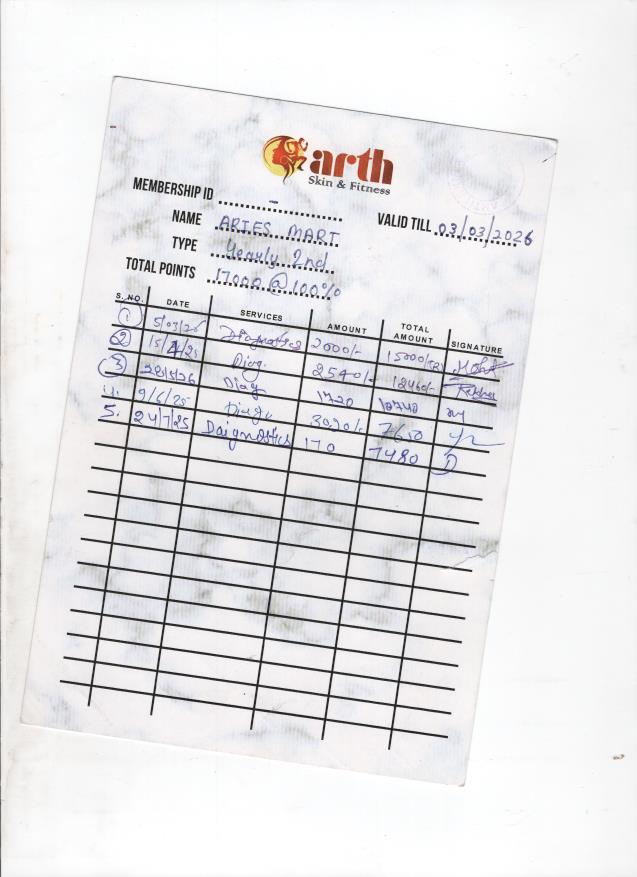 arth
Skin & Fitness
MEMBERSHIP ID -
NAME ARIES MART
VALID TILL 03/03/2026
TYPE Yearly 2nd
TOTAL POINTS 17000 @ 100%
S. NO. DATE SERVICES AMOUNT TOTAL AMOUNT SIGNATURE
1 5/03/25 Diagnostics 2000/- 15000/-
2 15/4/25 Diag. 2540/- 12460/-
3 Diag 1720 10740
4. 9/6/25 7650
5. 24/7/25 Daignostics 170 7480